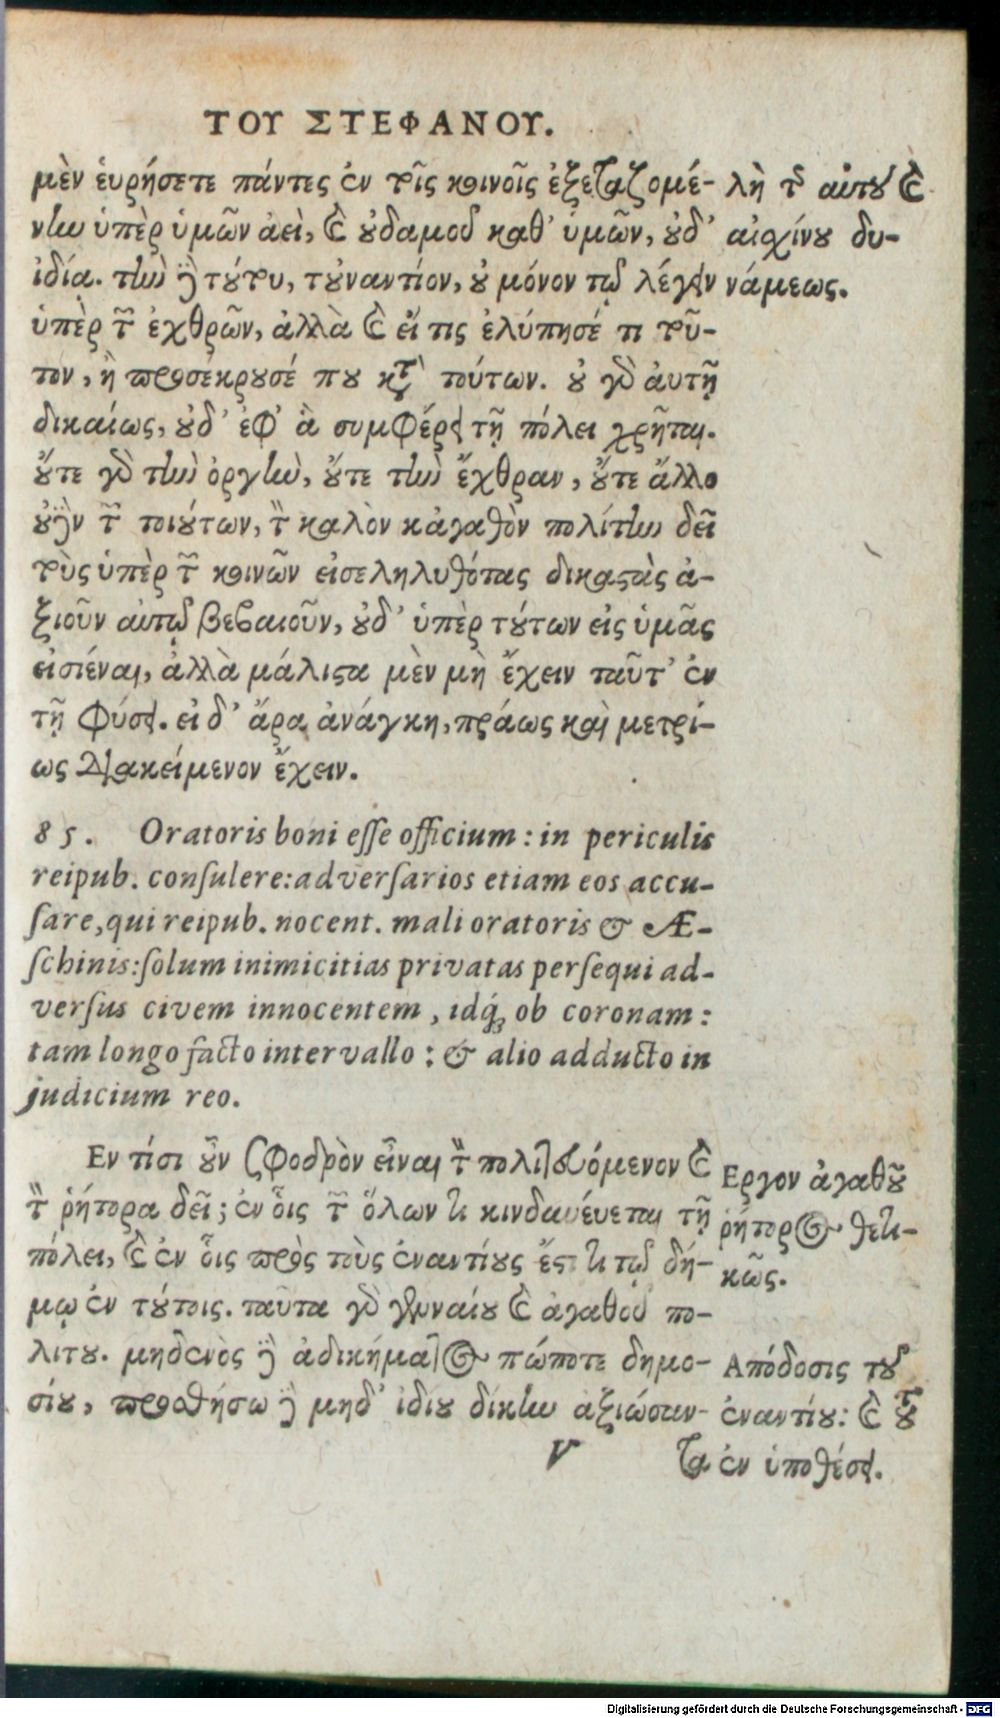 ΤΟΥ ΣΤΕΦΑΝΟΥ.
μὲν εὑρήσετε πάντες ἐν τοῖς κοινοῖς ἐξεταζομέ-
νην ὑπὲρ ὑμῶν ἀεὶ, καὶ οὐδαμοῦ καθ' ὑμῶν, οὐδ'
ἰδία. τὴν δὲ τούτου, τοὐναντίον, οὐ μόνον τῷ λέγειν
ὑπὲρ τῶν ἐχθρῶν, ἀλλὰ καὶ εἴ τις ἐλύπησέ τι τοῦ-
τον, ἢ προσέκρουσέ που κατὰ τούτων. οὐ γὰρ αὐτῇ
δικαίως, οὐδ' ἐφ' ἃ συμφέρει τῇ πόλει χρῆται.
οὔτε γὰρ τὴν ὀργὴν, οὔτε τὴν ἔχθραν, οὔτε ἄλλο
οὐδὲν τῶν τοιούτων, τὸν καλὸν κἀγαθὸν πολίτην δεῖ
τοὺς ὑπὲρ τῶν κοινῶν εἰσεληλυθότας δικαστὰς ἀ-
ξιοῦν αὑτῷ βεβαιοῦν, οὐδ' ὑπὲρ τούτων εἰς ὑμᾶς
εἰσιέναι, ἀλλὰ μάλιστα μὲν μὴ ἔχειν ταῦτ' ἐν
τῇ φύσει. εἰ δ' ἄρα ἀνάγκη, πράως καὶ μετρί-
ως διακείμενον ἔχειν.
λὴ τῆς αὐτοῦ καὶ
αἰσχίνου δυ-
νάμεως.
85. Oratoris boni esse officium: in periculis
reipub. consulere: adversarios etiam eos accu-
sare, qui reipub. nocent. mali oratoris & Æ-
schinis: solum inimicitias privatas persequi ad-
versus civem innocentem, idq́ꝫ ob coronam:
tam longo facto intervallo: & alio adducto in
judicium reo.
Εν τίσι οὖν σφοδρὸν εἶναι τὸν πολιτευόμενον καὶ
τὸν ῥήτορα δεῖ; ἐν οἷς τῶν ὅλων τι κινδυνεύεται τῇ
πόλει, καὶ ἐν οἷς πρὸς τοὺς ἐναντίους ἔστι τι τῷ δή-
μῳ ἐν τούτοις. ταῦτα γὰρ γενναίου καὶ ἀγαθοῦ πο-
λίτου. μηδενὸς δὲ ἀδικήματος πώποτε δημο-
σίου, προσθήσω δὲ μηδ' ἰδίου δίκην ἀξιώσαν-
Εργον ἀγαθοῦ
ῥήτορος θετι-
κῶς.
Απόδοσις τοῦ
ἐναντίου: καὶ τοῦ
ἐν ὑποθέσει.
V τα
Digitalisierung gefördert durch die Deutsche Forschungsgemeinschaft - DFG